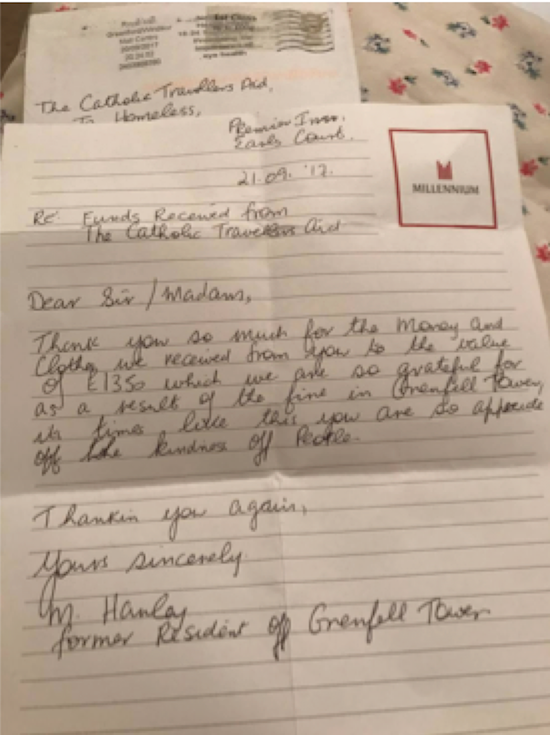 Greenford/Windsor
Mail Centre
20/09/2017
eye health
The Catholic Travellers Aid,
To Homeless,
Premier Inn.
Earls Court.
21.09. '17.
MILLENNIUM
Re: Funds Received from
The Catholic Travellers Aid
Dear Sir / Madam,
Thank you so much for the Money and
Clothes we received from you to the value
of £1350 which we are so grateful for
as a result of the fire in Grenfell Tower,
its times like this you are so appreciate
off the kindness off People.
Thankin you again,
Yours sincerely
M. Hanley
former Resident off Grenfell Tower